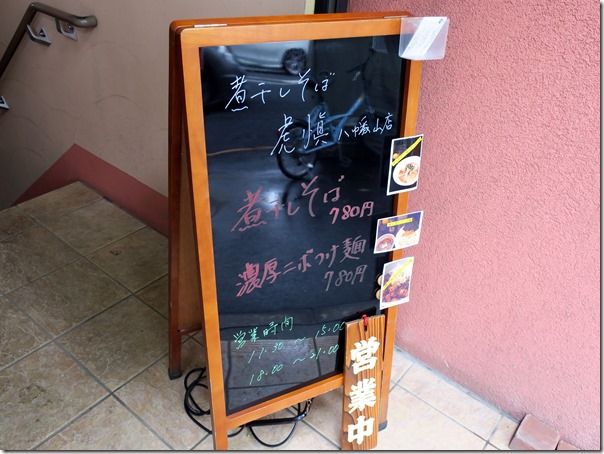 煮干しそば
虎愼 八幡山店
煮干しそば
780円
濃厚ニボつけ麺
780円
営業時間
11.30 〜 15.00
18.00 〜 21.00
営業中